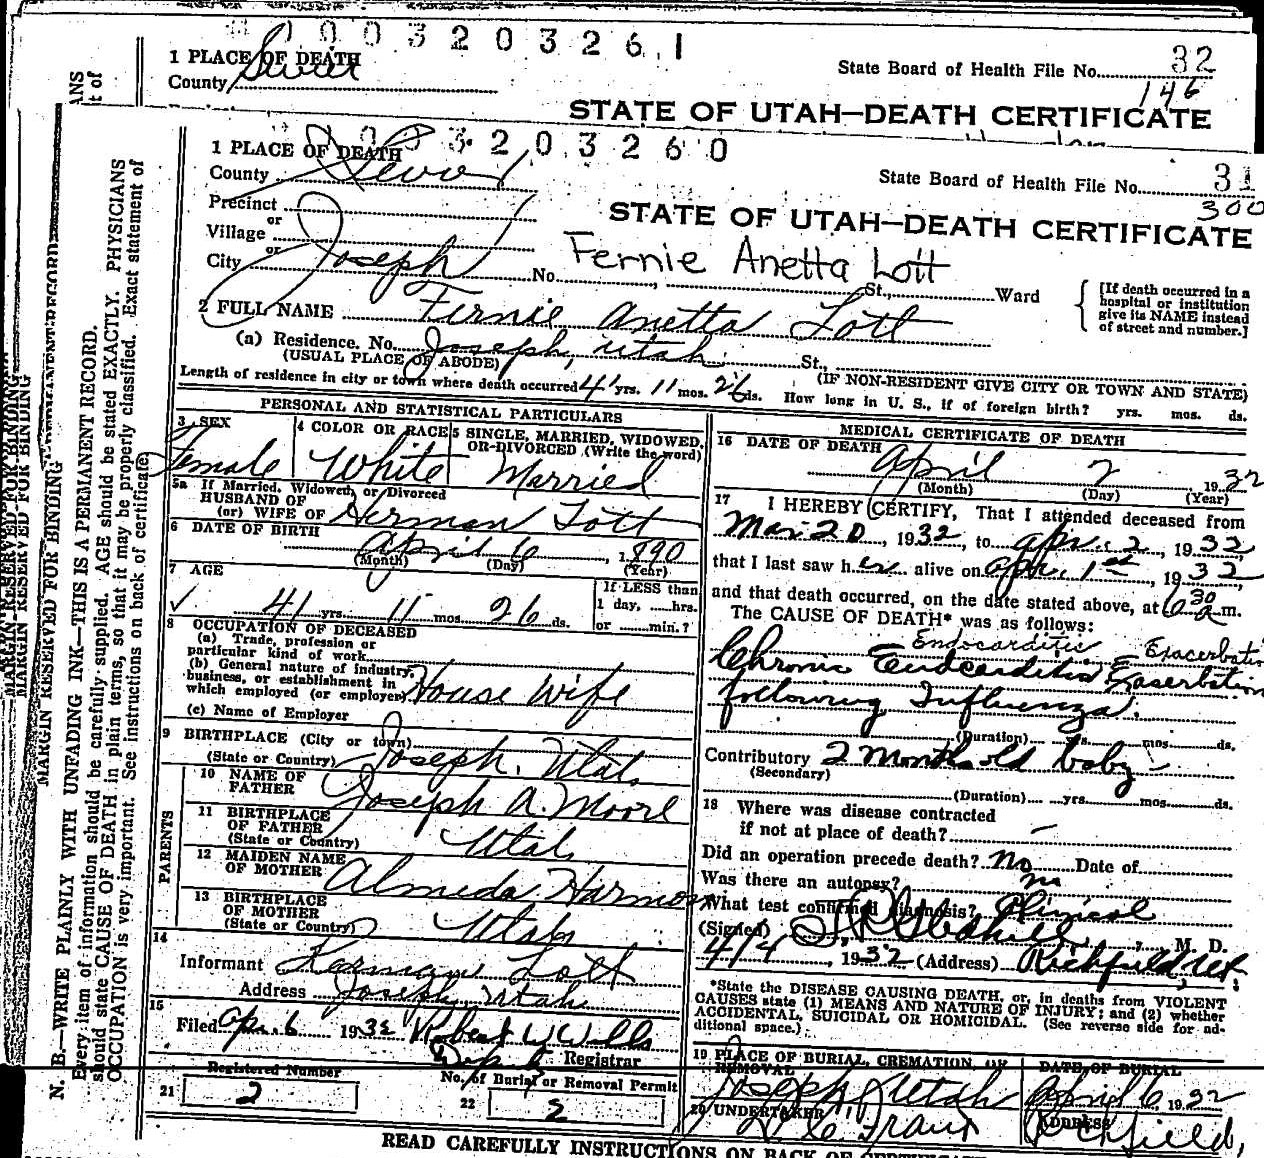 0003203261
1 PLACE OF DEATH
County Sevier
State Board of Health File No. 32
146
STATE OF UTAH—DEATH CERTIFICATE
3203260
1 PLACE OF DEATH
County Sevier
State Board of Health File No. 31
300
Precinct
or
STATE OF UTAH—DEATH CERTIFICATE
Village
or
City Joseph No. St., Ward
Fernie Anetta Lott
[If death occurred in a hospital or institution give its NAME instead of street and number.]
2 FULL NAME Fernie Anetta Lott
(a) Residence. No. Joseph, Utah St.,
(USUAL PLACE OF ABODE) (IF NON-RESIDENT GIVE CITY OR TOWN AND STATE)
Length of residence in city or town where death occurred 41 yrs. 11 mos. 26 ds. How long in U. S., if of foreign birth? yrs. mos. ds.
PERSONAL AND STATISTICAL PARTICULARS
3 SEX
Female
4 COLOR OR RACE
White
5 SINGLE, MARRIED, WIDOWED, OR DIVORCED (Write the word)
Married
5a If Married, Widowed, or Divorced
HUSBAND OF
(or) WIFE OF Herman Lott
6 DATE OF BIRTH
April 6 1890
(Month) (Day) (Year)
7 AGE
41 yrs. 11 mos. 26 ds.
If LESS than
1 day, hrs.
or min.?
8 OCCUPATION OF DECEASED
(a) Trade, profession or
particular kind of work
(b) General nature of industry,
business, or establishment in
which employed (or employer) House Wife
(c) Name of Employer
9 BIRTHPLACE (City or town)
(State or Country) Joseph, Utah
PARENTS
10 NAME OF
FATHER Joseph A. Moore
11 BIRTHPLACE
OF FATHER
(State or Country) Utah
12 MAIDEN NAME
OF MOTHER Almeda Harmon
13 BIRTHPLACE
OF MOTHER
(State or Country) Utah
14
Informant Herman Lott
Address Joseph Utah
15
Filed Apr. 6 1932 Robert W Wills
Dep. Registrar
Registered Number
21 2
No. of Burial or Removal Permit
22 2
MEDICAL CERTIFICATE OF DEATH
16 DATE OF DEATH
April 2 1932
(Month) (Day) (Year)
17 I HEREBY CERTIFY, That I attended deceased from
Mar 20, 1932, to Apr. 2, 1932
that I last saw her alive on Apr. 1st, 1932,
and that death occurred, on the date stated above, at 6 30 a m.
The CAUSE OF DEATH* was as follows:
Endocarditis Exacerbation
Chronic Endocarditis Exaserbation
following Influenza.
(Duration) yrs. mos. ds.
Contributory 2 months old baby
(Secondary)
(Duration) yrs. mos. ds.
18 Where was disease contracted
if not at place of death? —
Did an operation precede death? No Date of
Was there an autopsy? no
What test confirmed diagnosis? Clinical
(Signed) M. D.
4/4, 1932 (Address) Richfield, Ut.
*State the DISEASE CAUSING DEATH, or, in deaths from VIOLENT
CAUSES state (1) MEANS AND NATURE OF INJURY; and (2) whether
ACCIDENTAL, SUICIDAL OR HOMICIDAL. (See reverse side for ad-
ditional space.)
19 PLACE OF BURIAL, CREMATION, OR
REMOVAL
Joseph, Utah
DATE OF BURIAL
April 6, 1932
20 UNDERTAKER
ADDRESS
Richfield,
READ CAREFULLY INSTRUCTIONS ON BACK OF CERTIFICATE
MARGIN RESERVED FOR BINDING
MARGIN RESERVED FOR BINDING
MARGIN RESERVED FOR BINDING
N. B.—WRITE PLAINLY WITH UNFADING INK—THIS IS A PERMANENT RECORD.
Every item of information should be carefully supplied. AGE should be stated EXACTLY. PHYSICIANS
should state CAUSE OF DEATH in plain terms, so that it may be properly classified. Exact statement of
OCCUPATION is very important. See instructions on back of certificate.